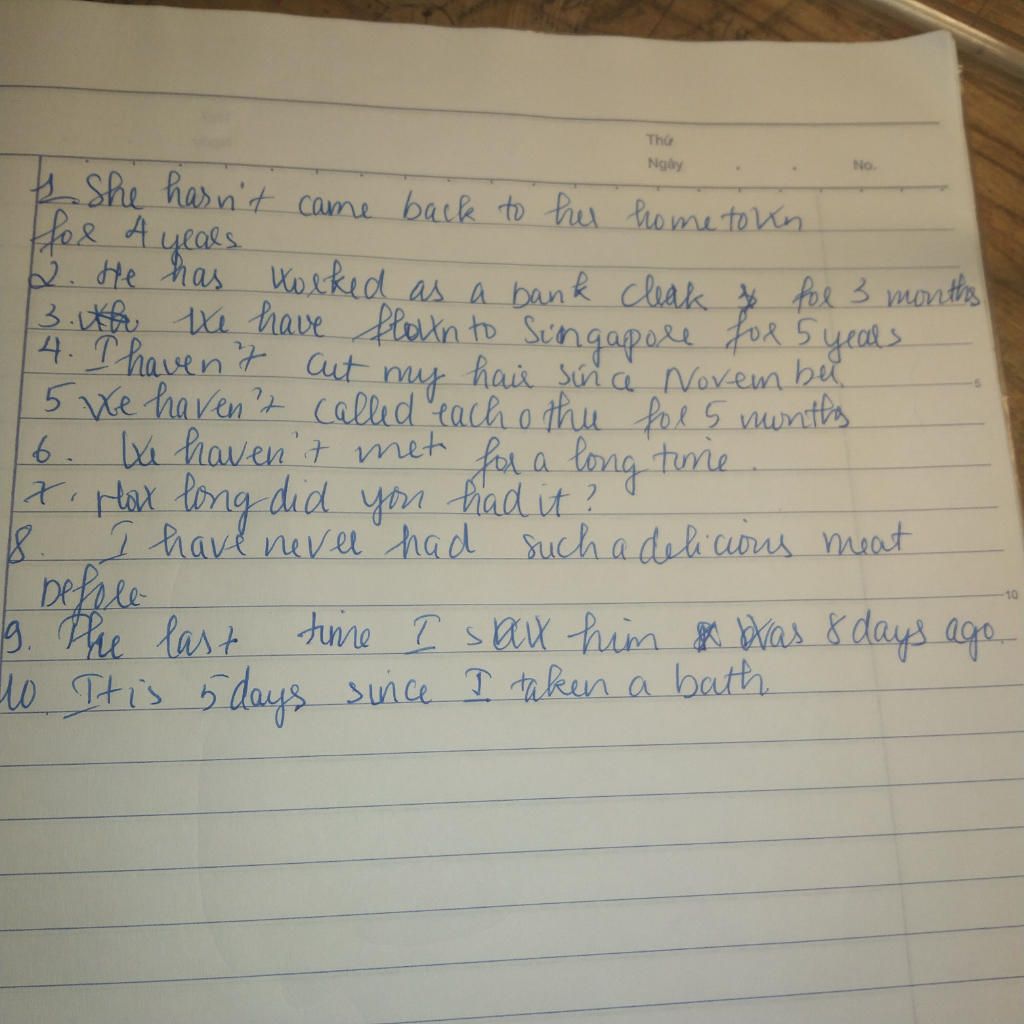 Thứ
Ngày . . No.
1. She hasn't came back to her hometown
for 4 years
2. He has worked as a bank cleak for 3 months
3. We have flown to Singapore for 5 years
4. I haven't cut my hair since November
5 We haven't called each other for 5 months
6. We haven't met for a long time.
7. How long did you had it?
8. I have never had such a delicious meat
before.
9. The last time I saw him was 8 days ago.
10. It is 5 days since I taken a bath
5
10